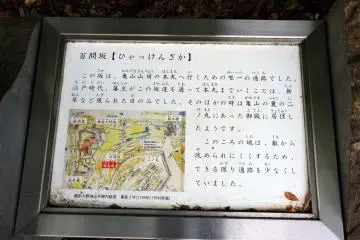 百間坂【ひゃっけんざか】
この坂は、亀山山頂の本丸へ行くための唯一の通路でした。
江戸時代、藩主がこの坂道を通って本丸までいくことは、新
年など限られた日のみでした。そのほかの時は亀山の麓の二
ノ丸にあった御殿に居住し
たようです。
このころの城は、敵から
攻められにくくするため、
できる限り通路を少なくし
ていました。